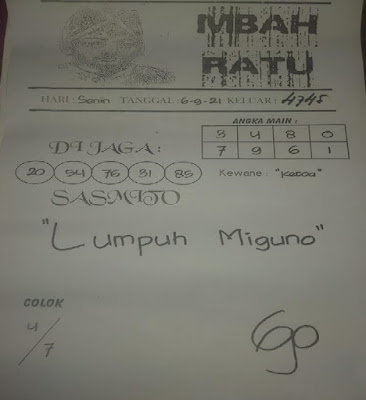 MBAH
RATU
HARI : Senin TANGGAL : 6-9-21 KELUAR : 4745
ANGKA MAIN :
3 4 8 0
7 9 6 1
DI JAGA :
20 54 76 31 85
Kewane : "Kebo"
SASMITO
"Lumpuh Miguno"
COLOK
4/7